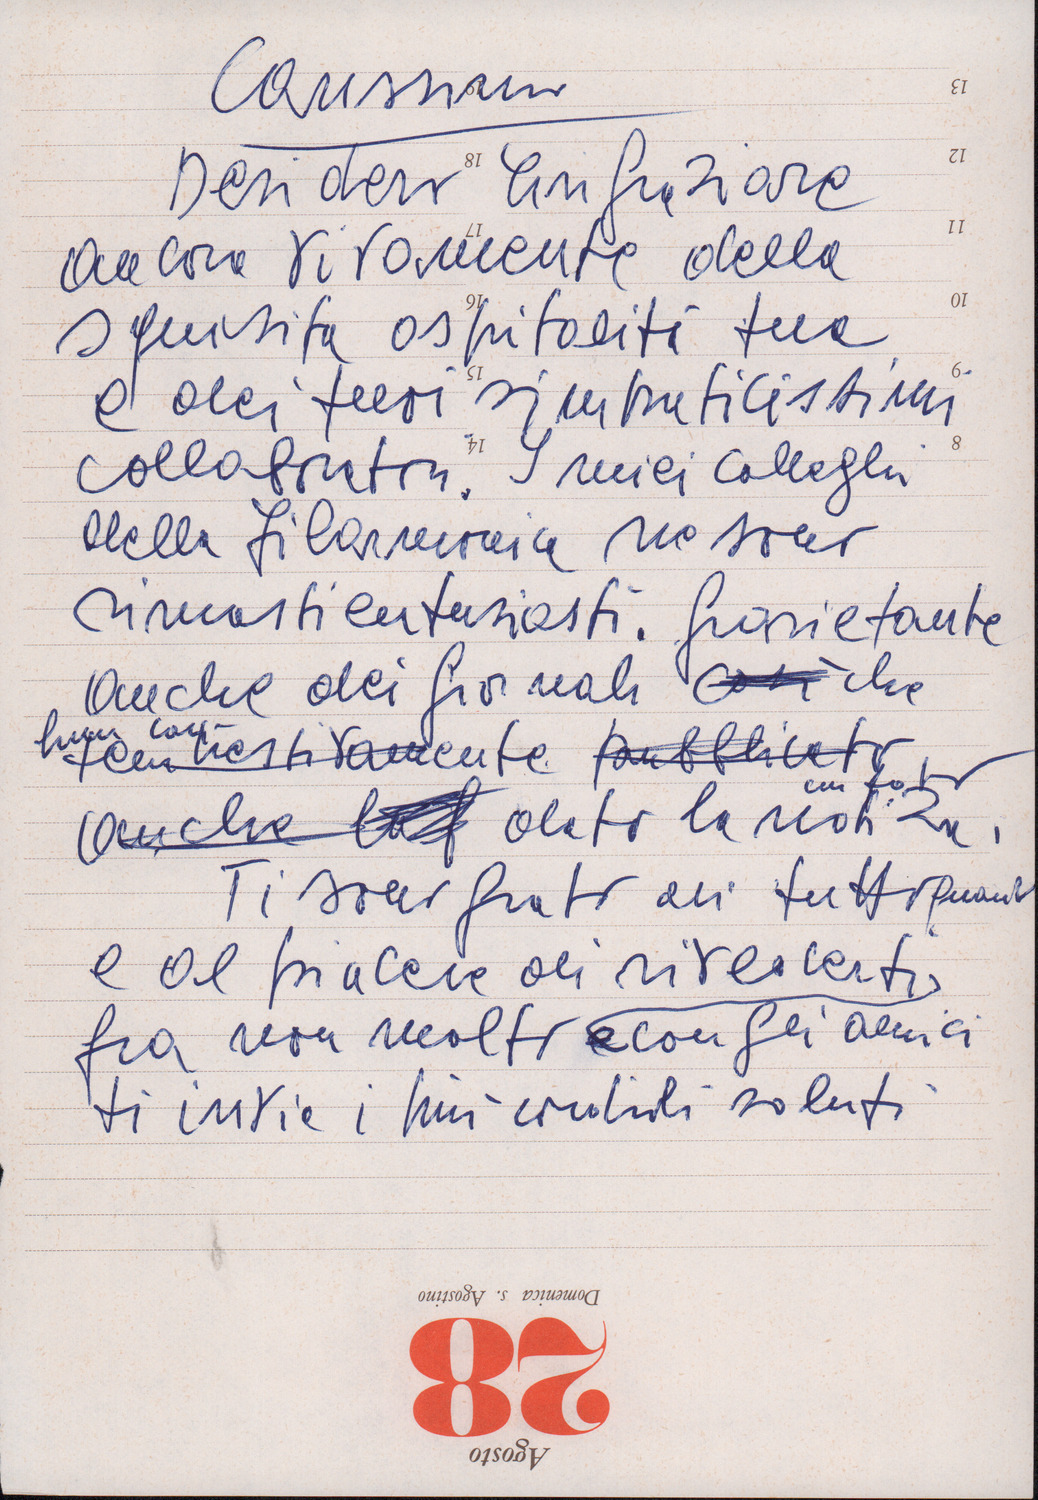 Carissimo
Desidero ringraziare
ancora vivamente della
squisita ospitalità tua
e dei tuoi simpaticissimi
collaboratori. I miei colleghi
della Filarmonica ne sono
rimasti entusiasti. Grazie tante
anche dei giornali così che
tempestivamente pubblicato
anche dato la notizia.
Ti sono grato di tutto quanto
e al piacere di rivederti
fra non molto e con gli amici
ti invio i più cordiali saluti
13
12
11
10
9
8
18
17
16
15
14
Domenica s. Agostino
28
Agosto